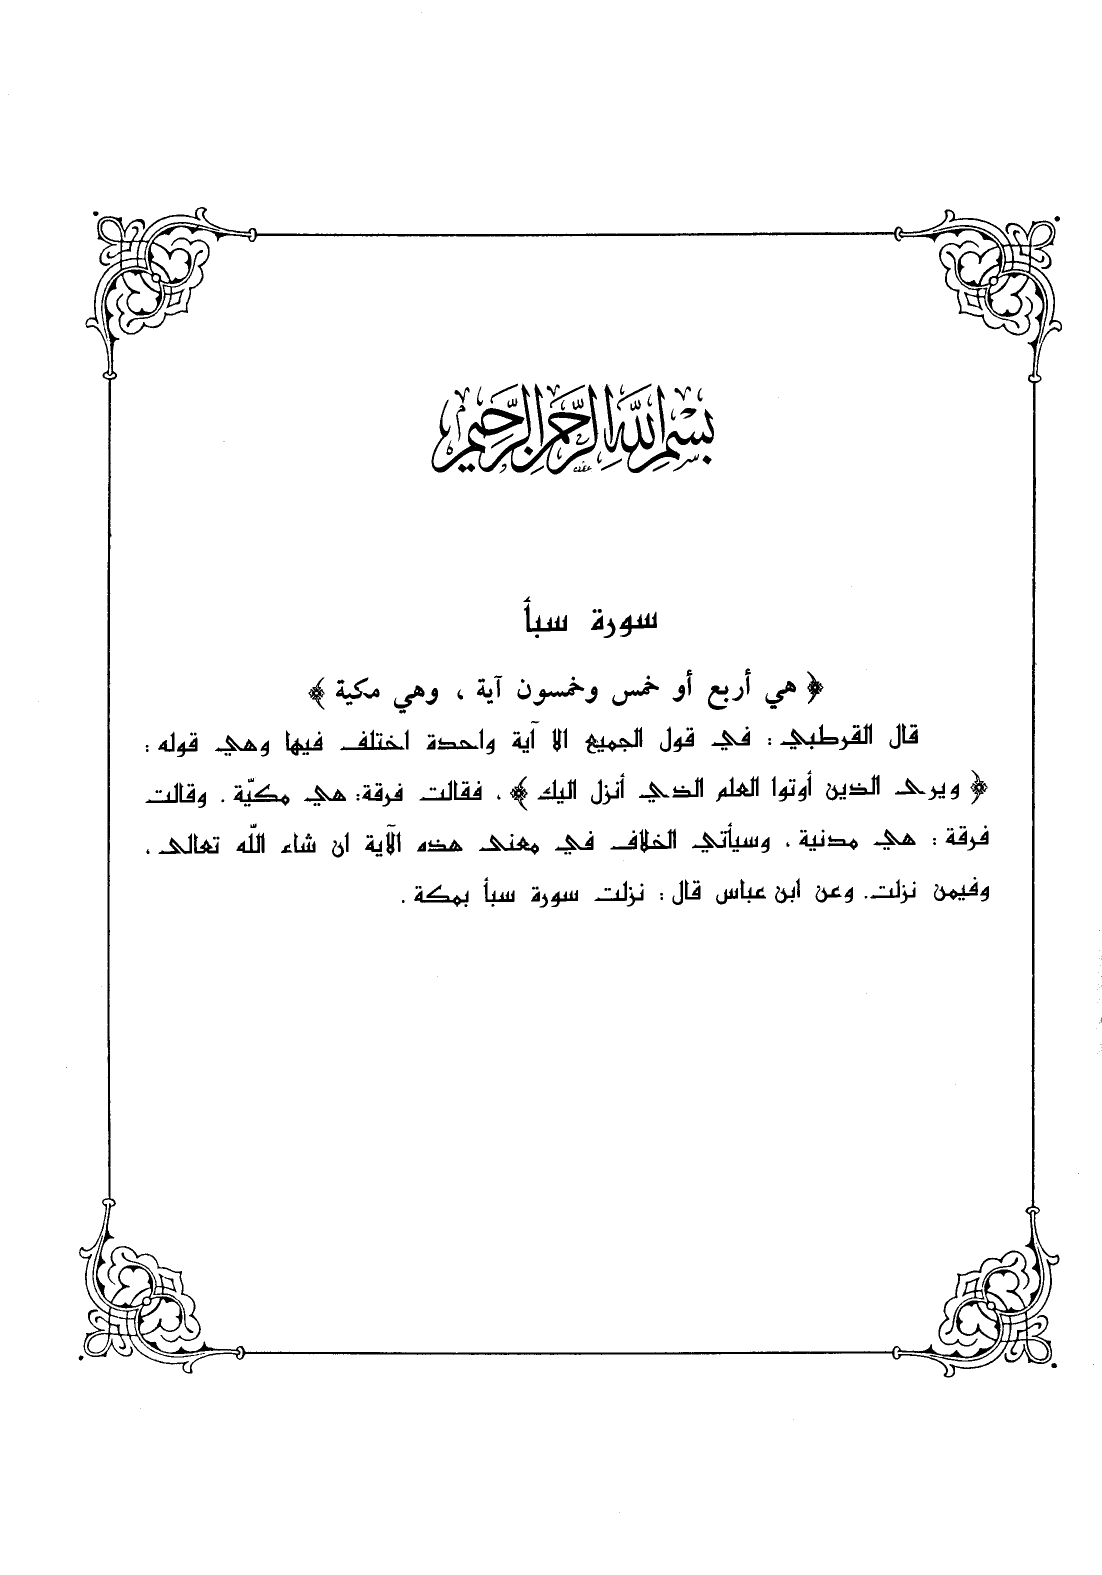 بسم الله الرحمن الرحيم
سورة سبأ
﴿ هي أربع أو خمس وخمسون آية ، وهي مكية ﴾
قال القرطبي : في قول الجميع الا آية واحدة اختلف فيها وهي قوله :
﴿ ويرى الذين أوتوا العلم الذي أنزل اليك ﴾ ، فقالت فرقة: هي مكيّة . وقالت
فرقة : هي مدنية ، وسيأتي الخلاف في معنى هذه الآية ان شاء اللّه تعالى ،
وفيمن نزلت. وعن ابن عباس قال : نزلت سورة سبأ بمكة .